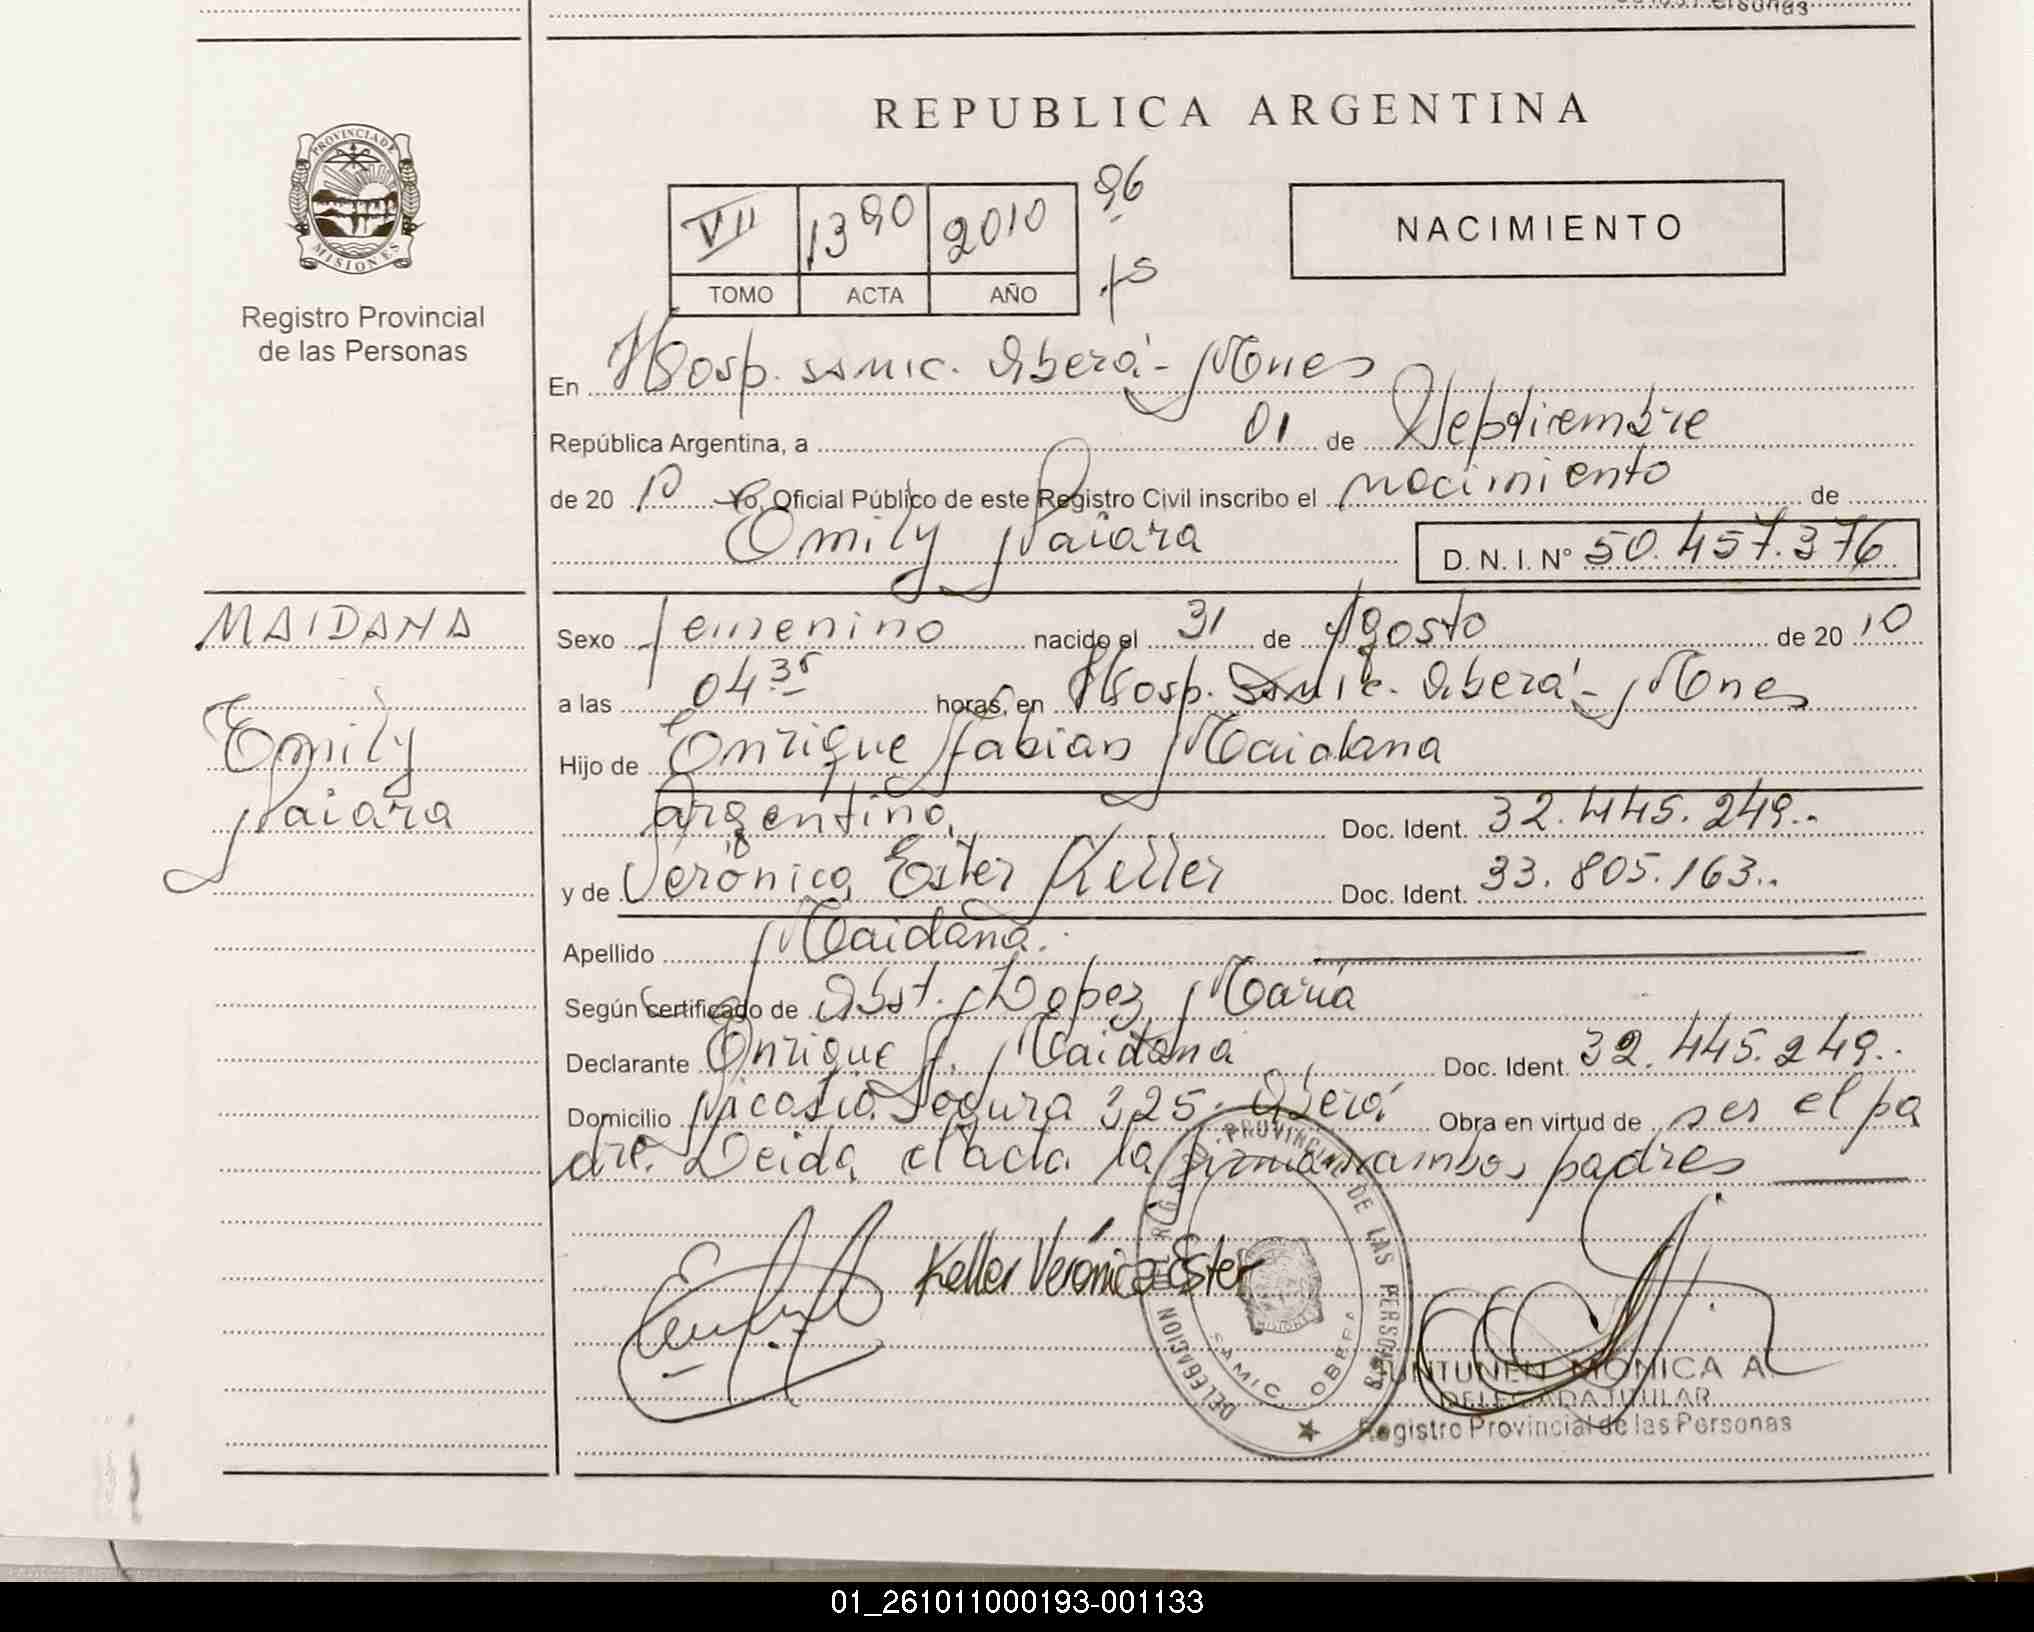 REPUBLICA ARGENTINA
PROVINCIA DE
MISIONES
Registro Provincial
de las Personas
VII 1390 2010 96
TOMO ACTA AÑO
NACIMIENTO
En Hosp. SAMIC. Oberá - Mnes
República Argentina, a 01 de Septiembre
de 20 10 Yo, Oficial Público de este Registro Civil inscribo el nacimiento de
Emily Naiara D. N. I. Nº 50.457.376
MAIDANA
Emily
Naiara
Sexo femenino nacido el 31 de Agosto de 20 10
a las 04 35 horas, en Hosp. Samic. Oberá - Mnes
Hijo de Enrique Fabian Maidana
Argentino, Doc. Ident. 32.445.249..
y de Verónica Ester Keller Doc. Ident. 33.805.163..
Apellido Maidana.
Según certificado de Obst. Lopez, Maria
Declarante Enrique F. Maidana Doc. Ident. 32.445.249..
Domicilio Nicosia Segura 325. Oberá Obra en virtud de ser el pa
dre. Leida el acta la firman ambos padres
Keller Verónica Ester
DELEGACION REG. PROVINCIAL DE LAS PERSONAS
SAMIC OBERA
MONICA A.
DELEGADA TITULAR
Registro Provincial de las Personas
01_261011000193-001133